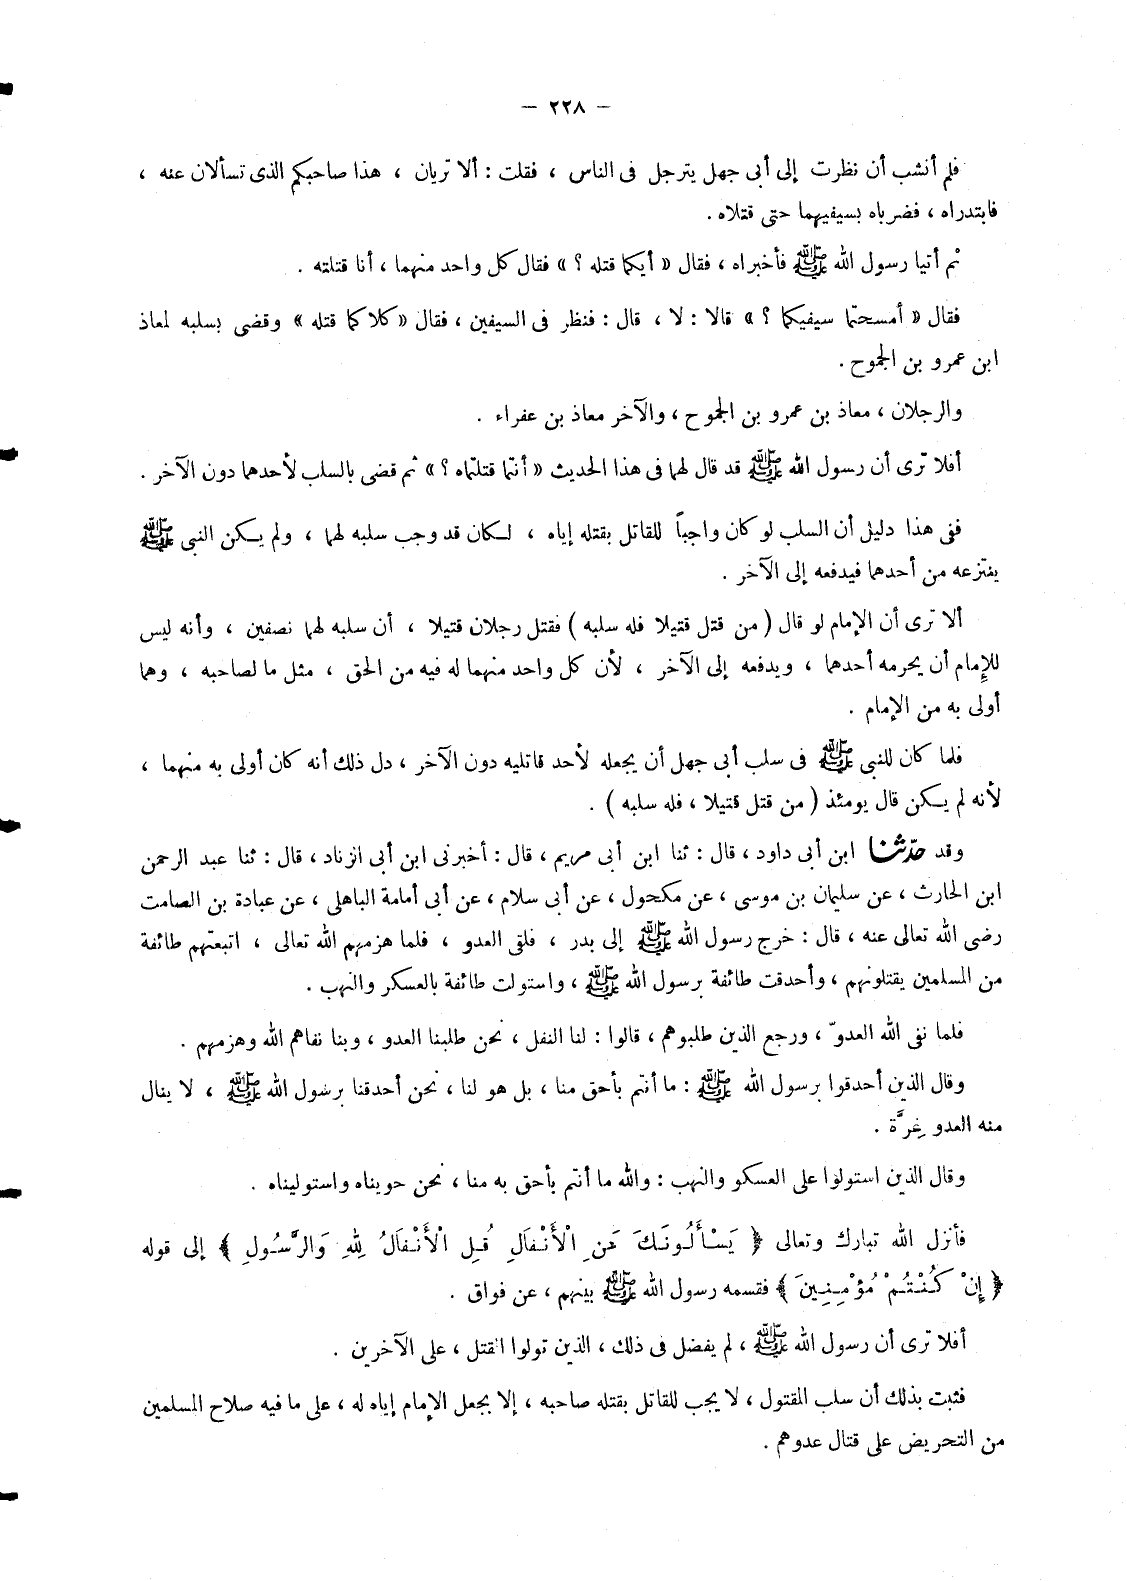 — ٢٢٨ —
فلم أنشب أن نظرت إلى أبى جهل يترجل فى الناس ، فقلت : ألا تريان ، هذا صاحبكم الذى تسألان عنه ،
فابتدراه ، فضرباه بسيفيهما حتى قتلاه .
ثم أتيا رسول الله ﷺ فأخبراه ، فقال « أيكما قتله ؟ » فقال كل واحد منهما ، أنا قتلته .
فقال « أمسحتما سيفيكما ؟ » قالا : لا ، قال : فنظر فى السيفين ، فقال «كلاكما قتله» وقضى بسلبه لمعاذ
ابن عمرو بن الجموح .
والرجلان ، معاذ بن عمرو بن الجموح ، والآخر معاذ بن عفراء .
أفلا ترى أن رسول الله ﷺ قد قال لهما فى هذا الحديث « أنتما قتلتماه ؟ » ثم قضى بالسلب لأحدهما دون الآخر .
ففى هذا دليل أن السلب لو كان واجباً للقاتل بقتله إياه ، لـكان قد وجب سلبه لهما ، ولم يـكن النبى ﷺ
ينتزعه من أحدهما فيدفعه إلى الآخر .
ألا ترى أن الإمام لو قال ( من قتل قتيلا فله سلبه ) فقتل رجلان قتيلا ، أن سلبه لهما نصفين ، وأنه ليس
للإمام أن يحرمه أحدهما ، ويدفعه إلى الآخر ، لأن كل واحد منهما له فيه من الحق ، مثل ما لصاحبه ، وهما
أولى به من الإمام .
فلما كان للنبى ﷺ فى سلب أبى جهل أن يجعله لأحد قاتليه دون الآخر ، دل ذلك أنه كان أولى به منهما ،
لأنه لم يـكن قال يومئذ ( من قتل قتيلا ، فله سلبه ) .
وقد حدّثنا ابن أبى داود ، قال : ثنا ابن أبى مريم ، قال : أخبرنى ابن أبى الزناد ، قال : ثنا عبد الرحمن
ابن الحارث ، عن سليمان بن موسى ، عن مكحول ، عن أبى سلام ، عن أبى أمامة الباهلى ، عن عبادة بن الصامت
رضى الله تعالى عنه ، قال : خرج رسول الله ﷺ إلى بدر ، فلقى العدو ، فلما هزمهم الله تعالى ، اتبعتهم طائفة
من المسلمين يقتلونهم ، وأحدقت طائفة برسول الله ﷺ ، واستولت طائفة بالعسكر والنهب .
فلما نفى الله العدوّ ، ورجع الذين طلبوهم ، قالوا : لنا النفل ، نحن طلبنا العدو ، وبنا نفاهم الله وهزمهم .
وقال الذين أحدقوا برسول الله ﷺ : ما أنتم بأحق منا ، بل هو لنا ، نحن أحدقنا برسول الله ﷺ ، لا ينال
منه العدو غِرَّة .
وقال الذين استولوا على العسكر والنهب : والله ما أنتم بأحق به منا ، نحن حويناه واستوليناه .
فأنزل الله تبارك وتعالى ﴿ يَسْأَلُونَكَ عَنِ الْأَنْفَالِ قُلِ الْأَنْفَالُ لِلّٰهِ وَالرَّسُولِ ﴾ إلى قوله
﴿ إِنْ كُنْتُمْ مُؤْمِنِينَ ﴾ فقسمه رسول الله ﷺ بينهم ، عن فواق .
أفلا ترى أن رسول الله ﷺ ، لم يفضل فى ذلك ، الذين تولوا القتل ، على الآخرين .
فثبت بذلك أن سلب المقتول ، لا يجب للقاتل بقتله صاحبه ، إلا بجعل الإمام إياه له ، على ما فيه صلاح المسلمين
من التحريض على قتال عدوهم .